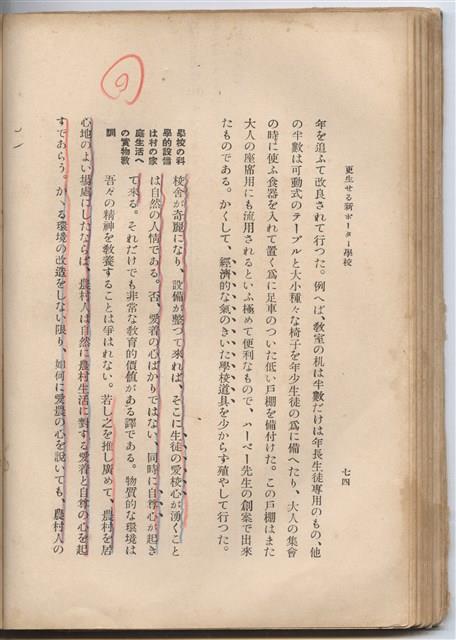 更生せる新ポーター學校
七四
年を追ふて改良されて行つた。例へば、敎室の机は半數だけは年長生徒專用のもの、他
の半數は可動式のテーブルと大小種々な椅子を年少生徒の爲に備へたり、大人の集會
の時に使ふ食器を入れて置く爲に足車のついた低い戶棚を備付けた。この戶棚はまた
大人の座席用にも流用されるといふ極めて便利なもので、ハーベー先生の創案で出來
たものである。かくして、經濟的な氣のきいた學校道具を少からず殖やして行つた。
學校の科
學的設備
は村の家
庭生活へ
の實物敎
訓
校舍が奇麗になり、設備が整つて來れば、そこに生徒の愛校心が湧くこと
は自然の人情である。否、愛着の心ばかりではない、同時に自尊心が起き
て來る。それだけでも非常な敎育的價値がある譯である。物質的な環境は
吾々の精神を敎養することは爭はれない。若し之を推し廣めて、農村を居
心地のよい場處にしたならば、農村人は自然に農村生活に對する愛着と自尊の心を起
すであらう。かゝる環境の改造をしない限り、如何に愛農の心を說いても、農村人の